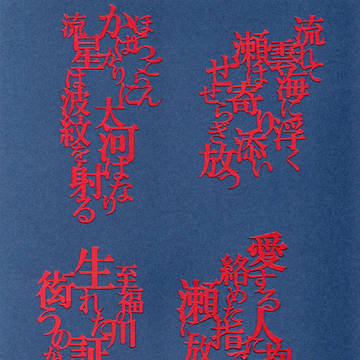 流れて
雲海に浮く
瀬は寄り添い
せせらぎ放つ
かばかりに
大河はなり
流星は波紋を射る
愛する人に
絡めた指
瀬に放
至福の川
生れた証
うのか